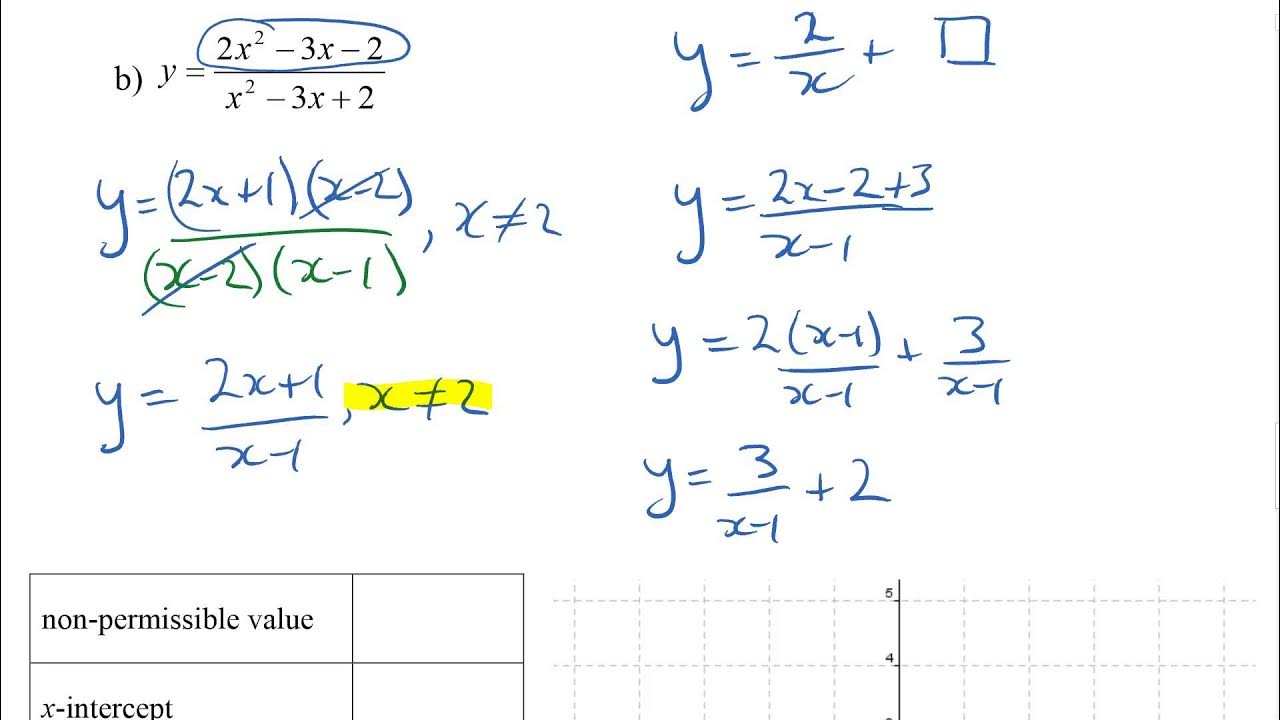 b) y = (2x² − 3x − 2)/(x² − 3x + 2)
y = (2x+1)(x-2)/(x-2)(x-1), x ≠ 2
y = (2x+1)/(x-1), x ≠ 2
y = 2/x + □
y = (2x-2+3)/(x-1)
y = 2(x-1)/(x-1) + 3/(x-1)
y = 3/(x-1) + 2
non-permissible value
x-intercept
5
4